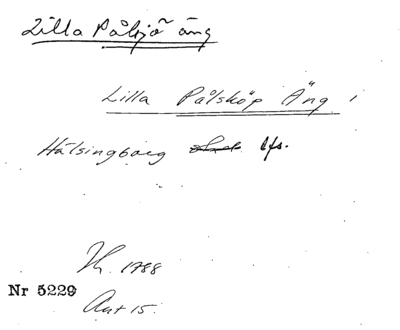 Lilla Pålsjö äng
Lilla Pålsköp Äng
Hälsingborg lfs.
1788
Nr 5229
Akt 15.